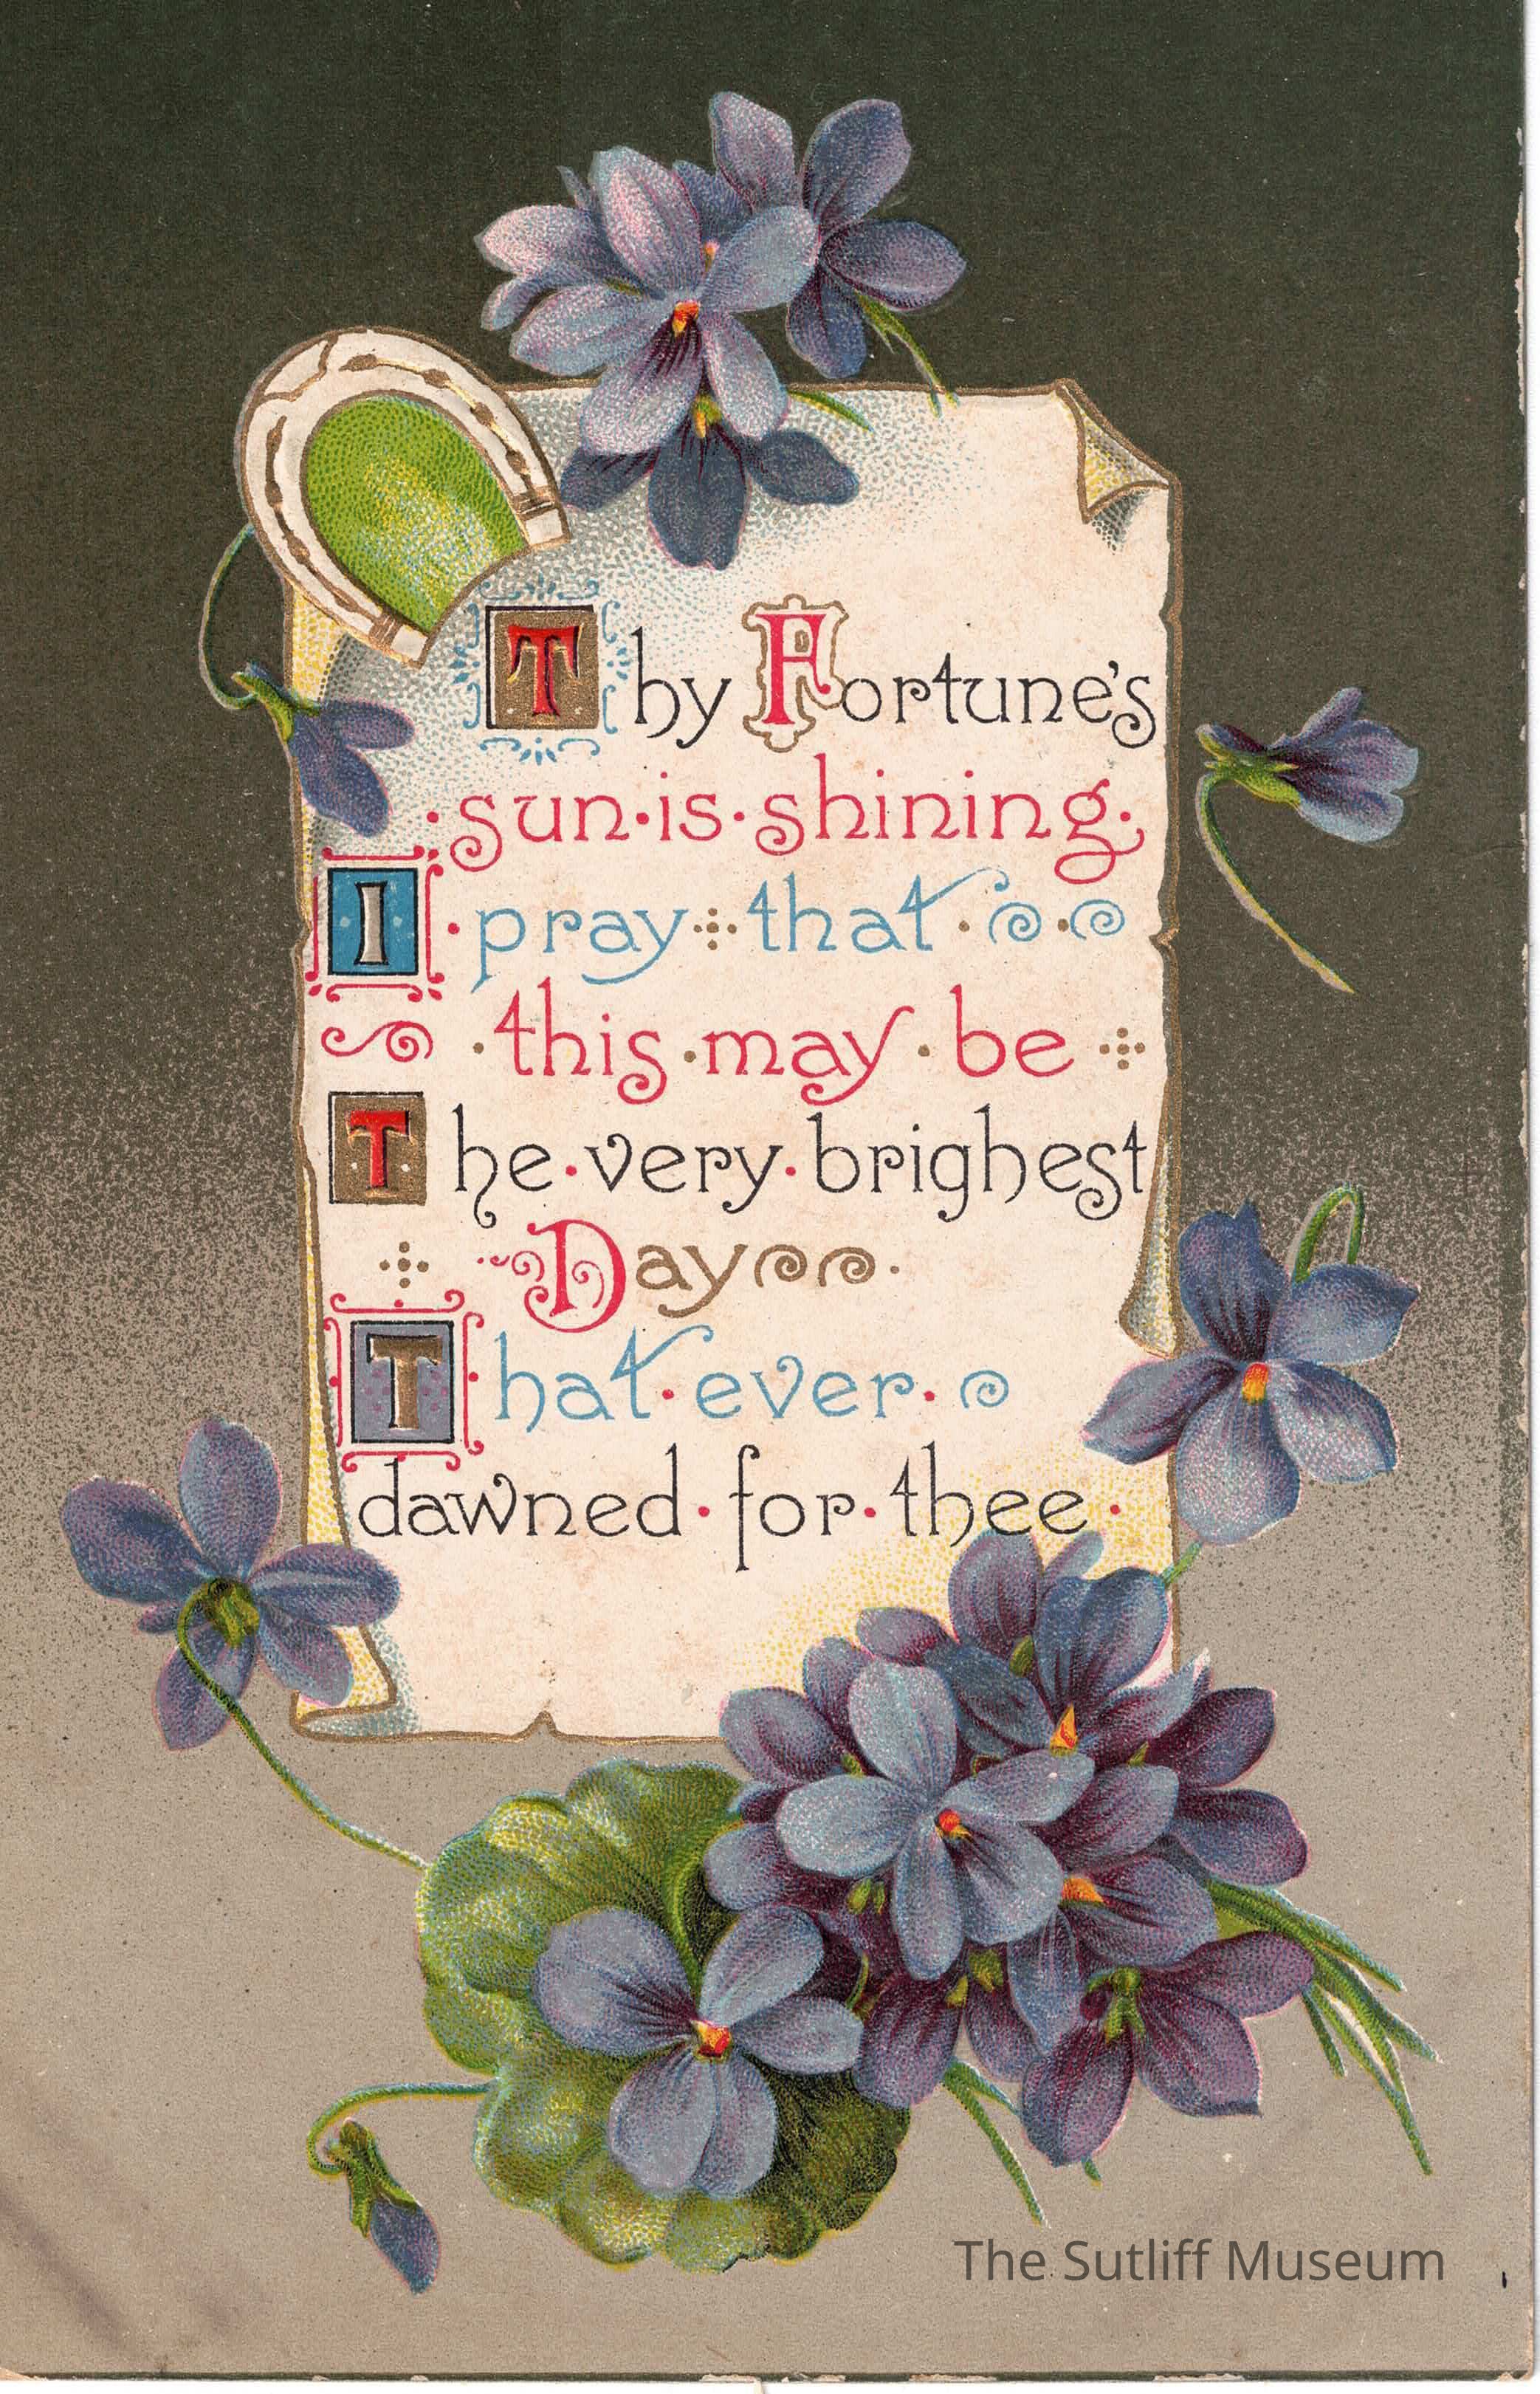 Thy Fortune's
sun·is·shining.
I·pray that
this·may·be
The·very·brighest
Day
That·ever·
dawned·for·thee·
The Sutliff Museum